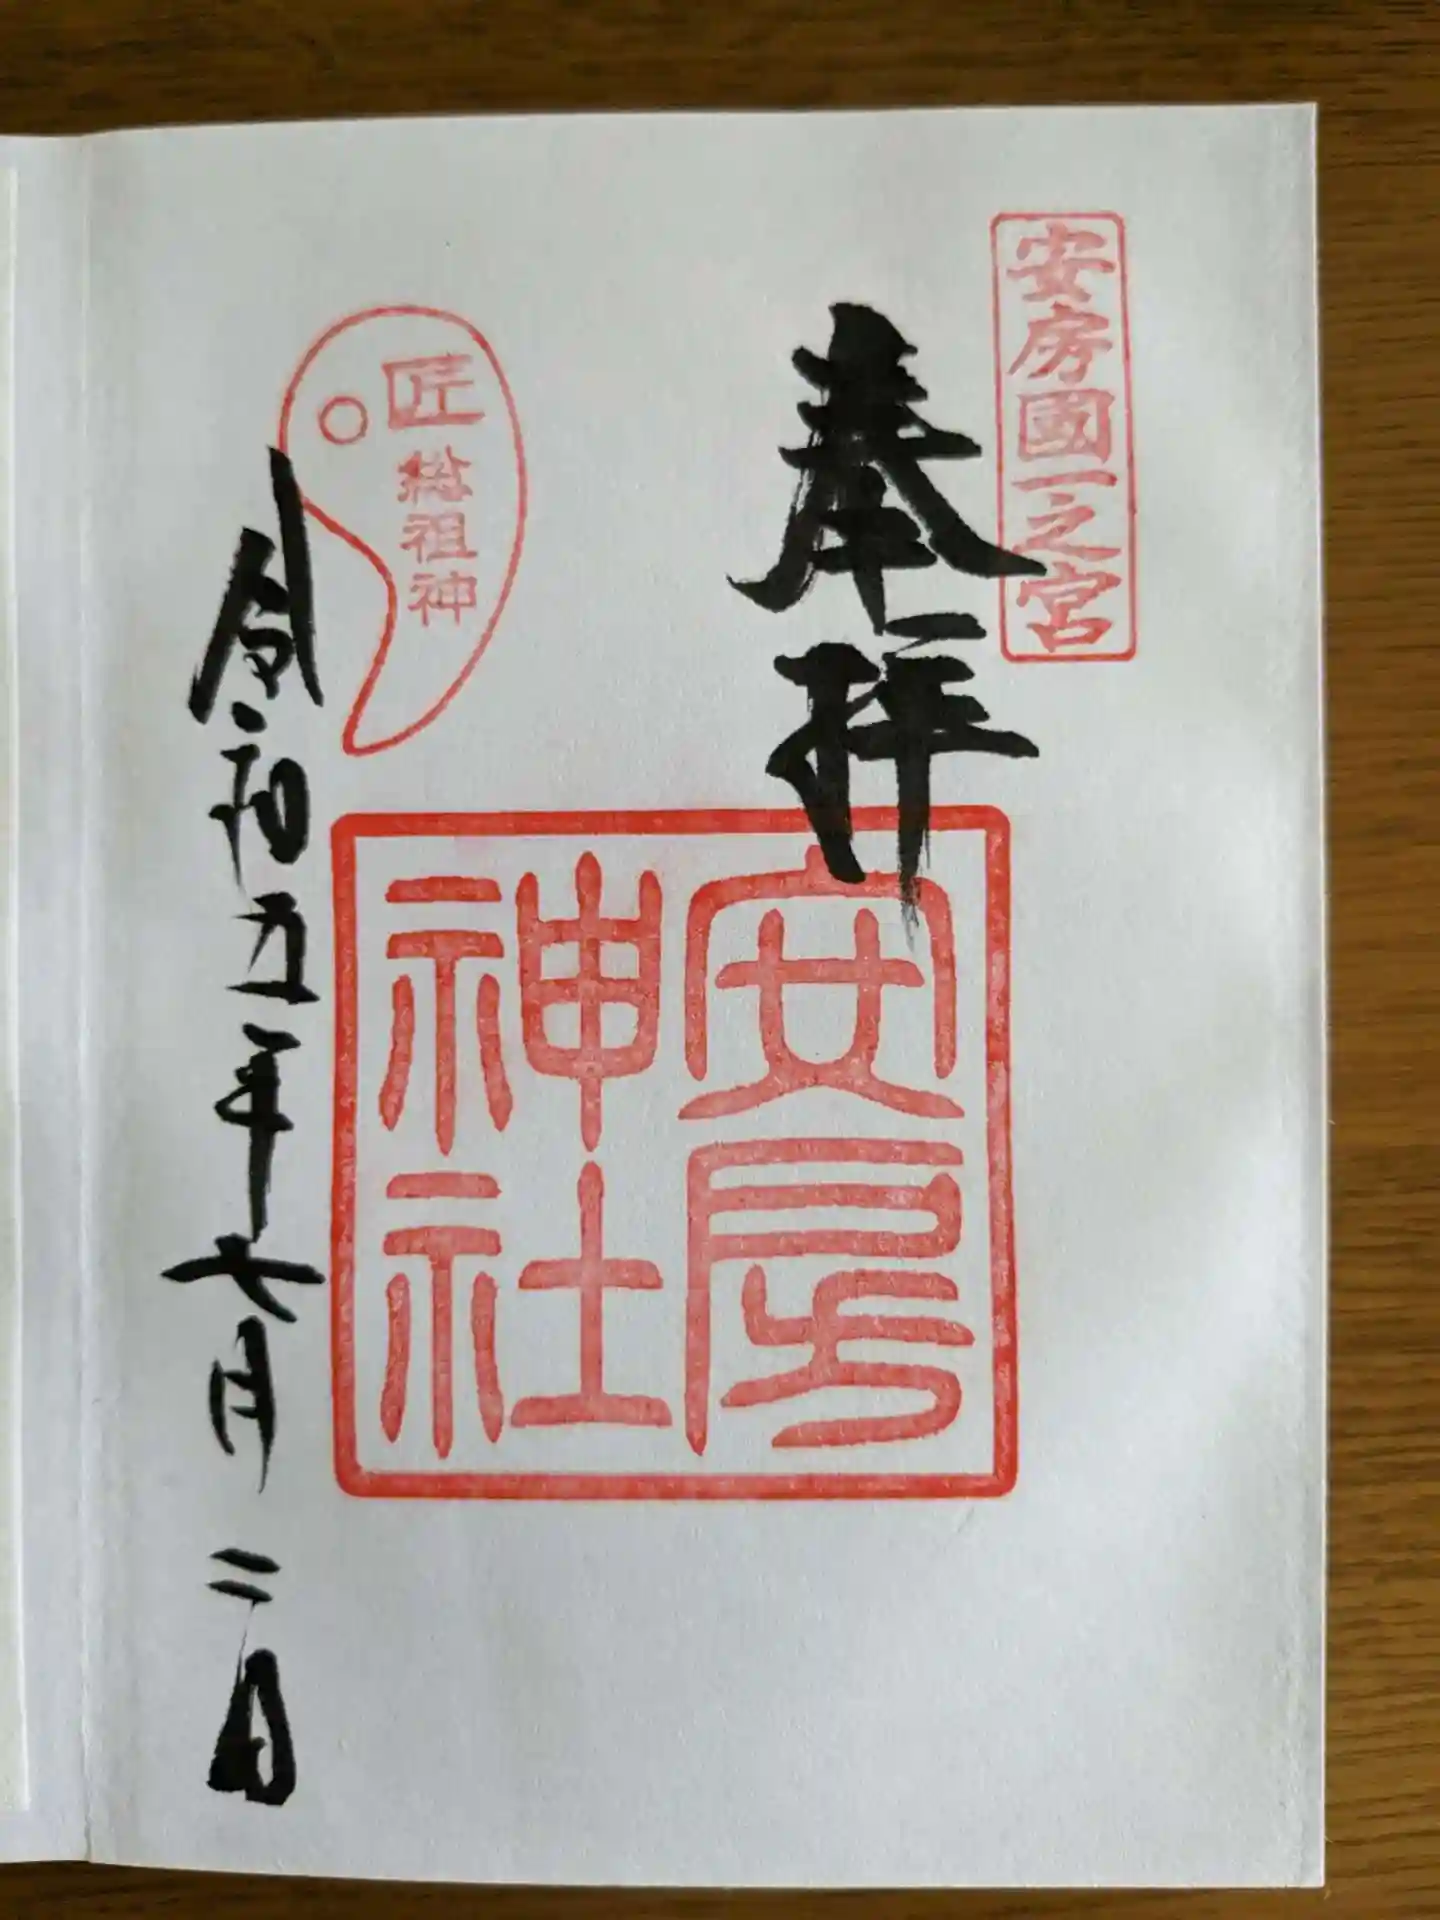 安房國一之宮
奉拝
安房神社
匠総祖神
令和五年七月二日